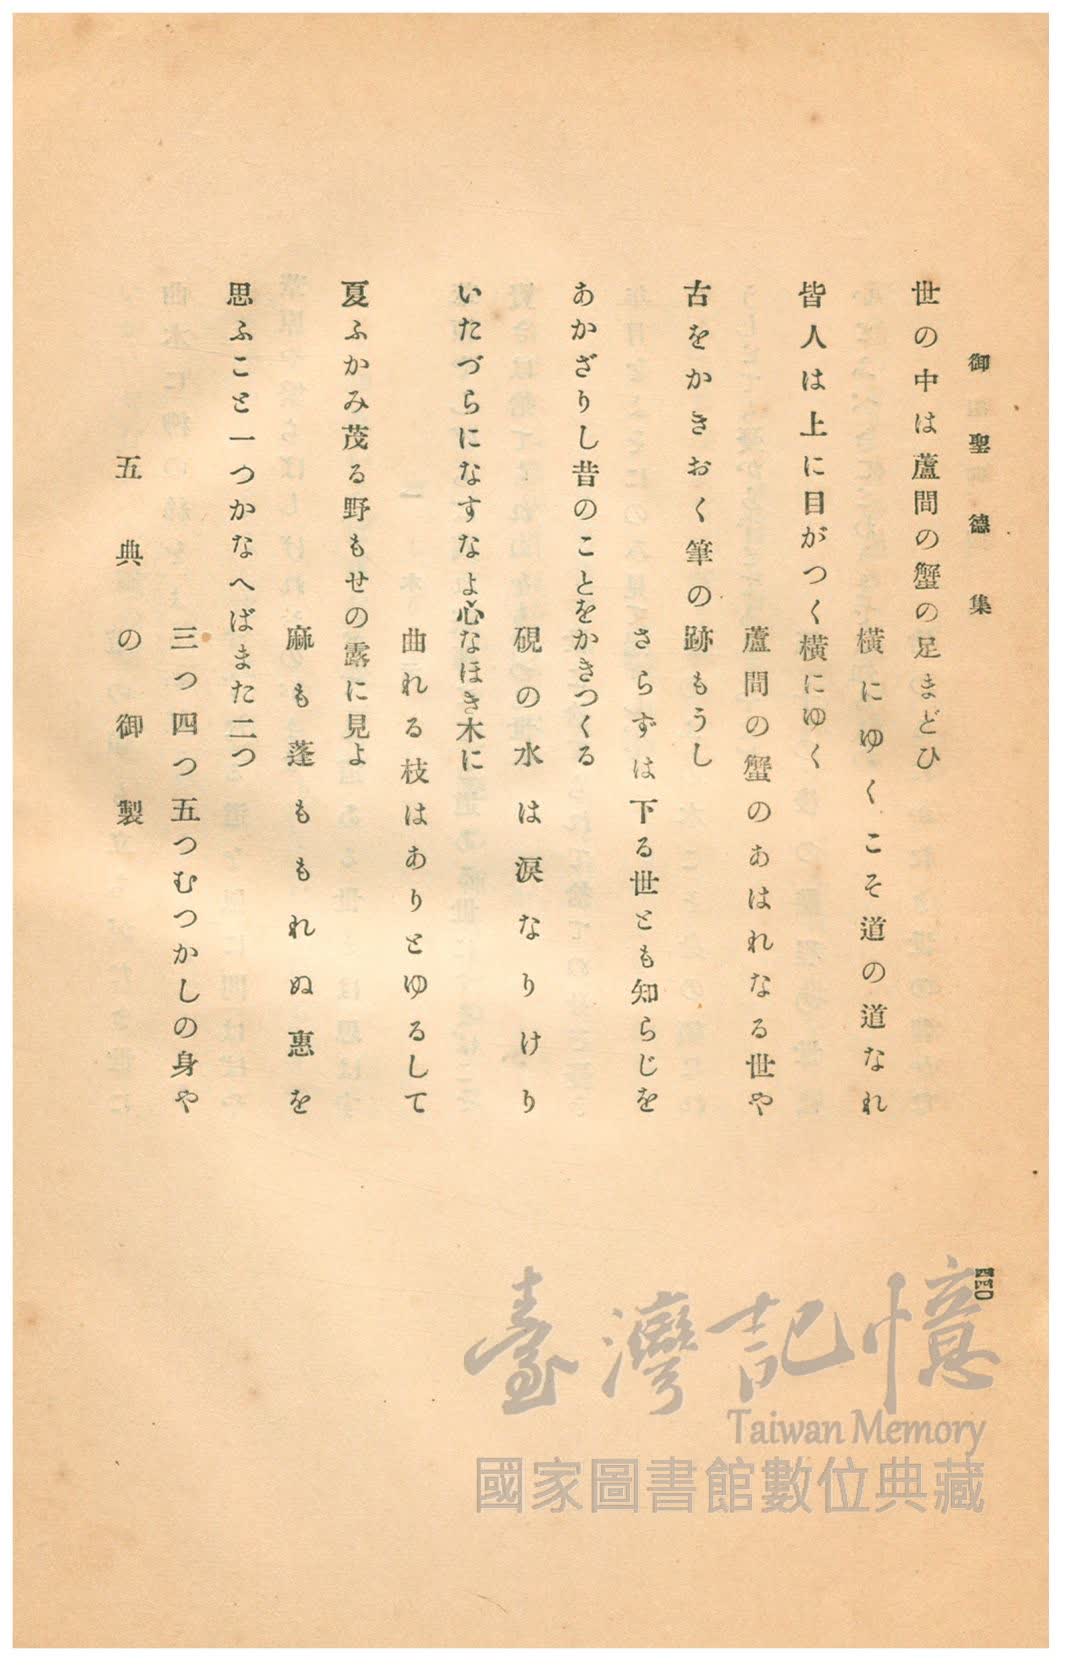 御聖德集
世の中は蘆間の蟹の足まどひ
橫にゆくこそ道の道なれ
皆人は上に目がつく橫にゆく
蘆間の蟹のあはれなる世や
古をかきおく筆の跡もうし
さらずは下る世とも知らじを
あかざりし昔のことをかきつくる
硯の水は淚なりけり
いたづらになすなよ心なほき木に
曲れる枝はありとゆるして
夏ふかみ茂る野もせの露に見よ
麻も蓬ももれぬ惠を
思ふこと一つかなへばまた二つ
三つ四つ五つむつかしの身や
五典の御製
四四〇
臺灣記憶
Taiwan Memory
國家圖書館數位典藏